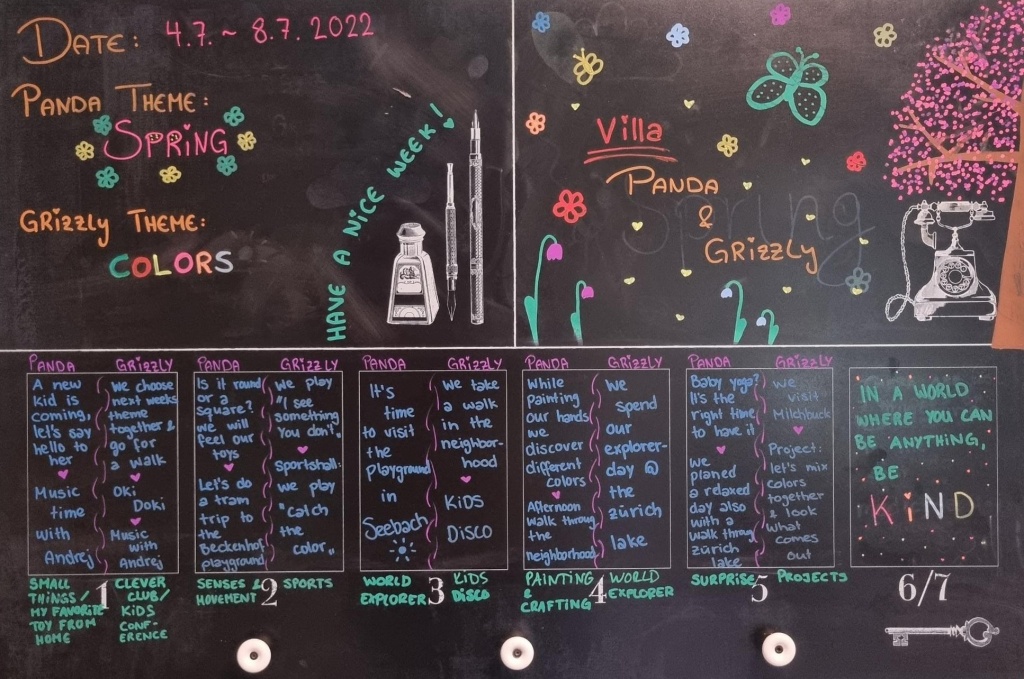 DATE: 4.7. ~ 8.7. 2022
PANDA THEME:
SPRING
GRIZZLY THEME:
COLORS
HAVE A NICE WEEK!
Villa
PANDA
&
GRIZZLY
Spring
PANDA
A new
kid is
coming,
let's say
hello to
her
Music
time
with
Andrej
GRIZZLY
we choose
next weeks
theme
together &
go for
a walk
Oki
Doki
Music
with
Andrej
SMALL
THINGS/
MY FAVORITE
TOY FROM
HOME
1
CLEVER
CLUB/
KIDS
CONF-
ERENCE
PANDA
Is it round
or a
square?
we will
feel our
toys
Let's do
a tram
trip to
the
Beckenhof
playground
GRIZZLY
we play
"I see
something
you don't"
Sportshall:
we play
"catch
the
color"
SENSES &
MOVEMENT
2
SPORTS
PANDA
It's
time
to visit
the
playground
in
Seebach
GRIZZLY
we take
a walk
in the
neighbor-
hood
KIDS
DISCO
WORLD
EXPLORER
3
KIDS
DISCO
PANDA
While
painting
our hands
we
discover
different
colors
Afternoon
walk throug
the
neighborhood
GRIZZLY
we
spend
our
explorer-
day @
the
zürich
lake
PAINTING
&
CRAFTING
4
WORLD
EXPLORER
PANDA
Baby yoga?
It's the
right time
to have it
we
planed
a relaxed
day also
with a
walk throug
zürich
lake
GRIZZLY
we
visit
Milchbuck
Project:
let's mix
colors
together
& look
what
comes
out
SURPRISE
5
PROJECTS
IN A WORLD
WHERE YOU CAN
BE ANYTHING,
BE
KiND
6/7